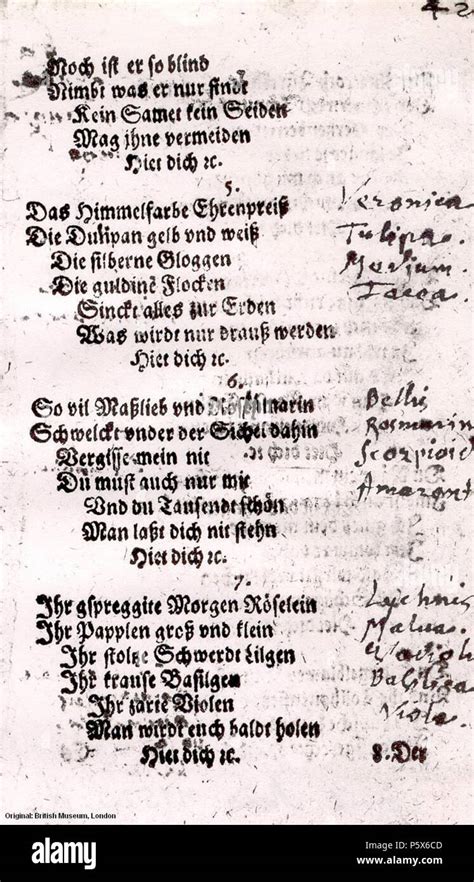 42
Noch ist er so blind
Nimbt was er nur findt
Kein Samet kein Seiden
Mag jhne vermeiden
Hiet dich ꝛc.
5.
Das Himmelfarbe Ehrenpreiß Veronica
Die Dulipan gelb vnd weiß Tulipa.
Die silberne Gloggen
Die guldinē Flocken
Sinckt alles zur Erden
Was wirdt nur drauß werden
Hiet dich ꝛc.
6.
So vil Maßlieb vnd Roßmarin Bellis
Schwelckt vnder der Sichel dahin Rosmarin
Vergissemein nit Scorpioid
Du must auch nur mit Amarant
Vnd du Tausendt schön
Man laßt dich nit stehn
Hiet dich ꝛc.
7.
Ihr gspreggite Morgen Röselein Lychnis
Ihr Papplen groß vnd klein Malua.
Ihr stoltze Schwerdt Lilgen Gladiol
Ihr krause Basilgen Basiliga
Ihr zarte Violen Viola.
Man wirdt euch baldt holen
Hiet dich ꝛc. 8. Der
Original: British Museum, London
alamy stock photo
P5X6CD
www.alamy.com